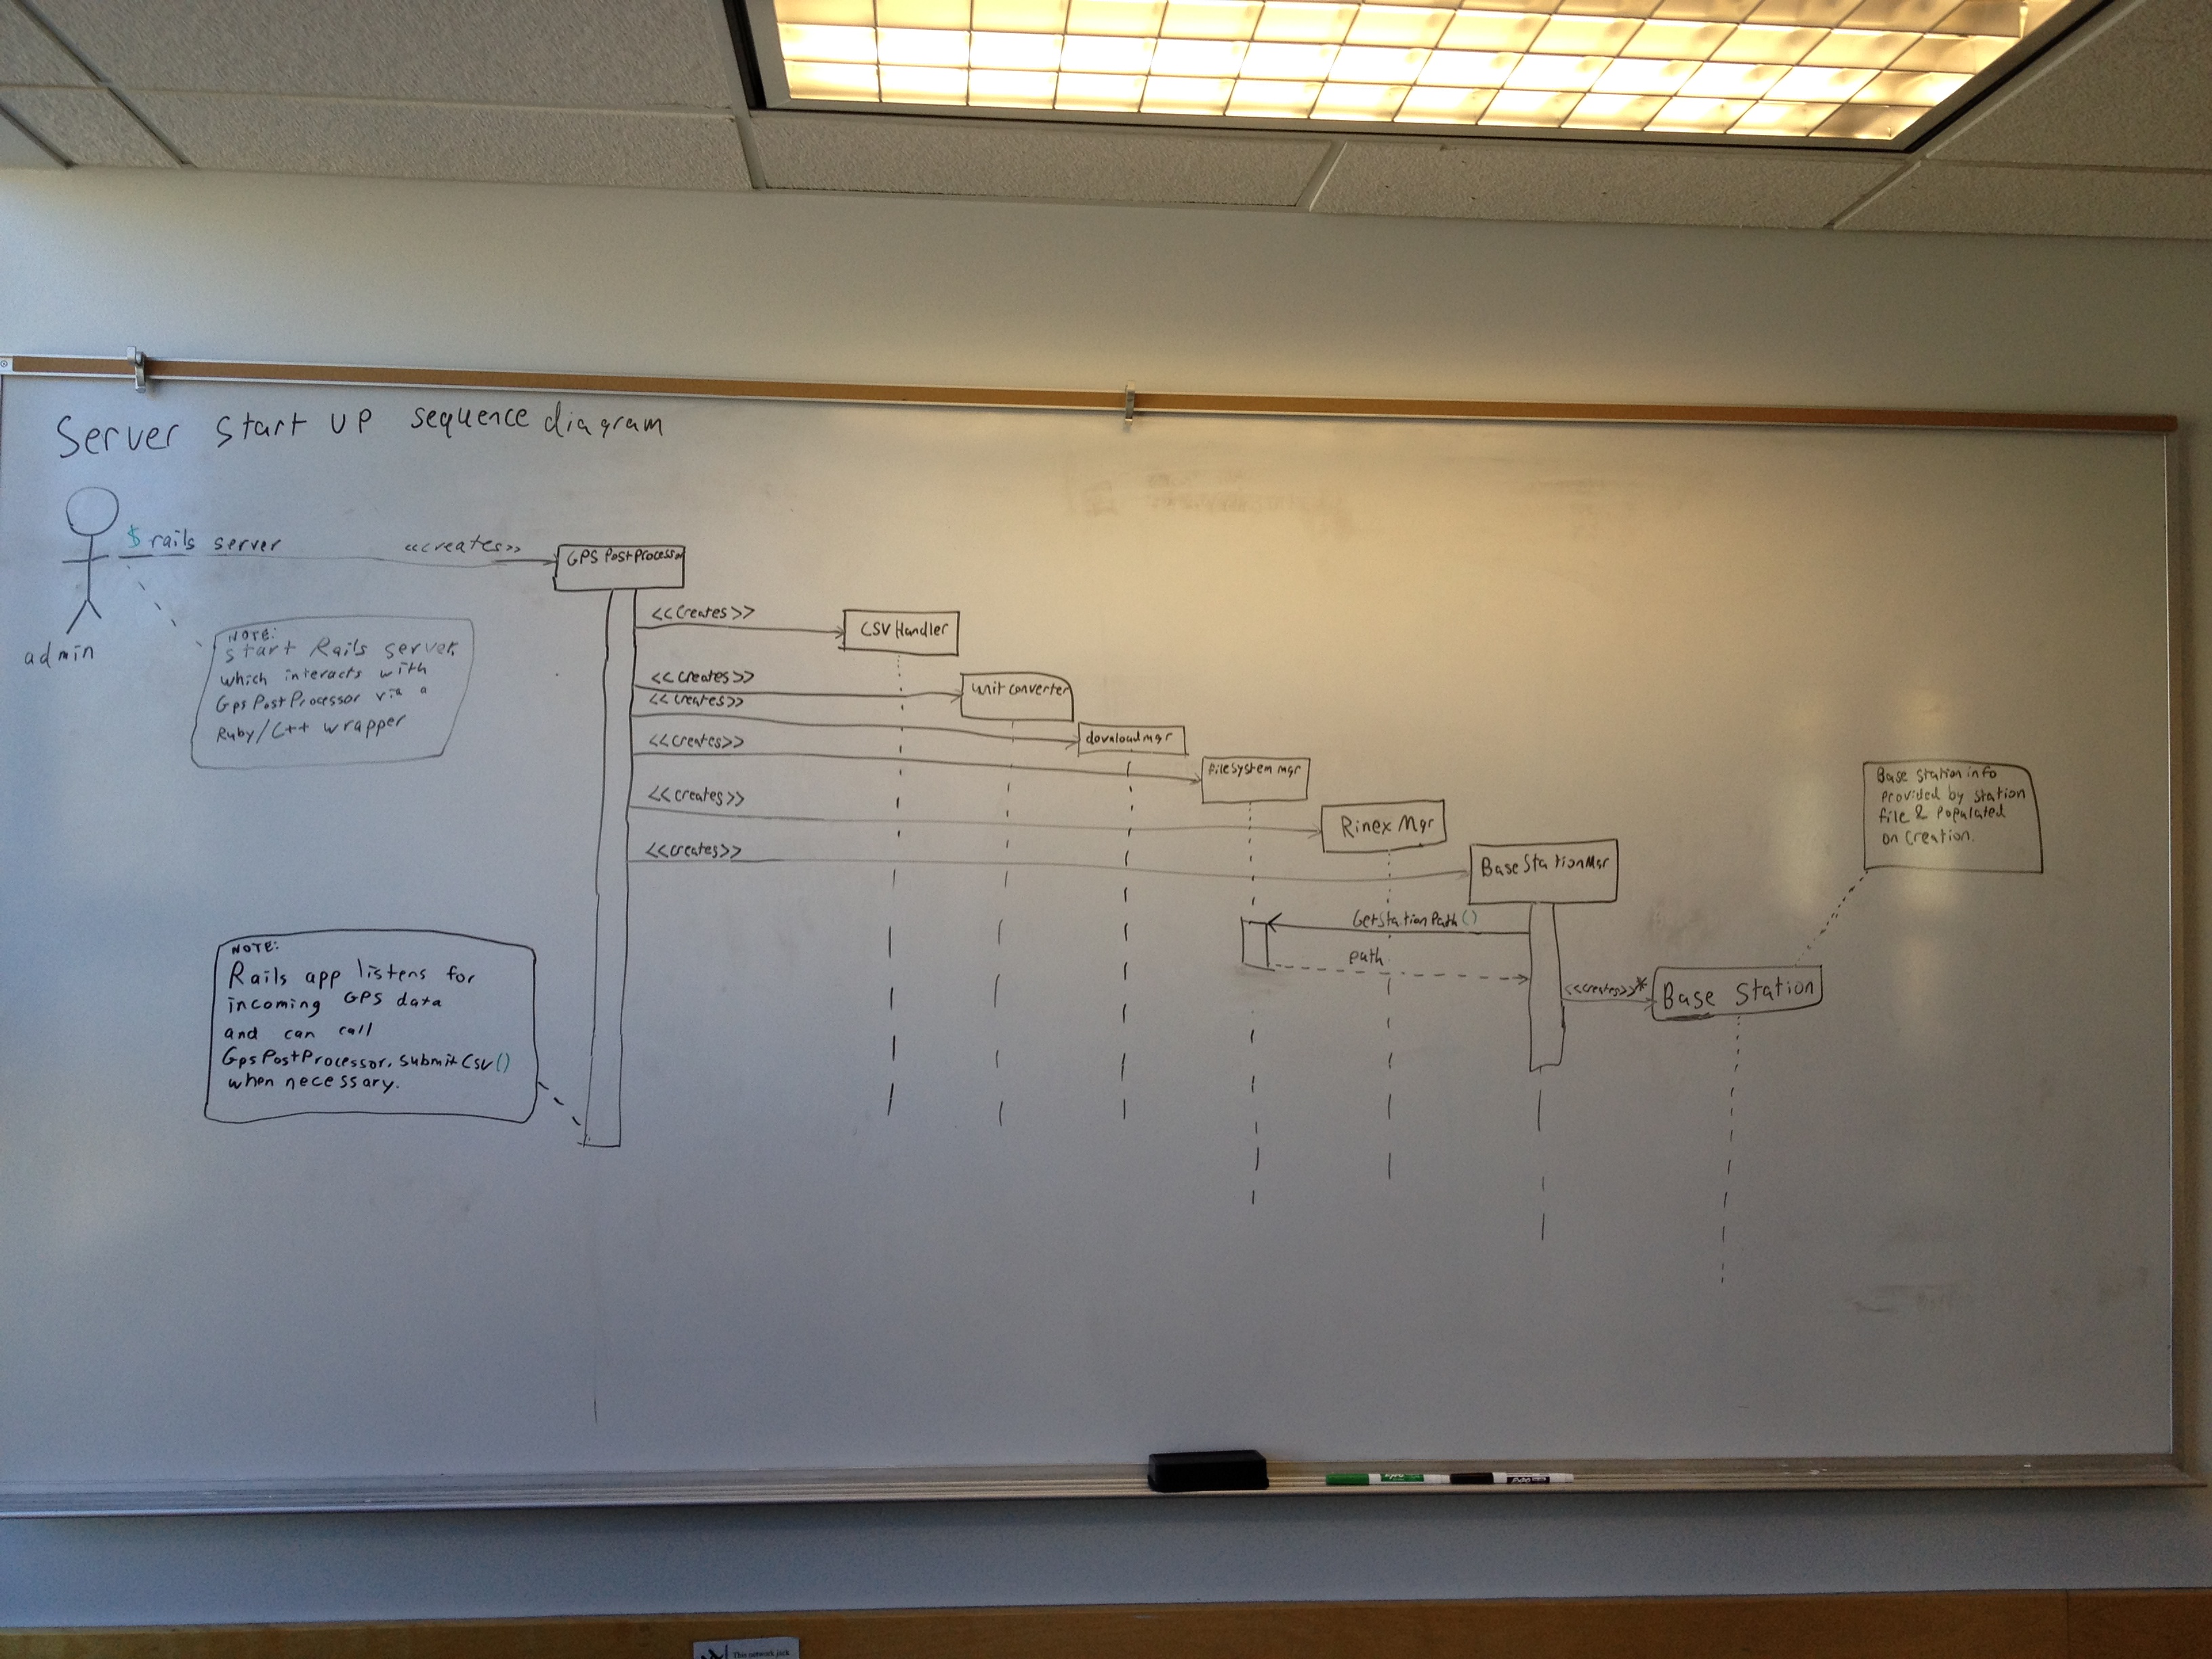 Server Start UP sequence diagram
$ rails server
<<creates>>
GPS PostProcessor
admin
NOTE:
Start Rails server,
which interacts with
GpsPostProcessor via a
Ruby/C++ wrapper
<<creates>>
CSV Handler
<<creates>>
unit converter
<<creates>>
downloadmgr
<<creates>>
filesystem mgr
<<creates>>
Rinex Mgr
<<creates>>
BaseStationMgr
Base Station info
Provided by Station
file & Populated
on Creation.
GetStationPath()
path
<<creates>>*
Base Station
NOTE:
Rails app listens for
incoming GPS data
and can call
GpsPostProcessor.submitCsv()
when necessary.
expo
expo
This network jack